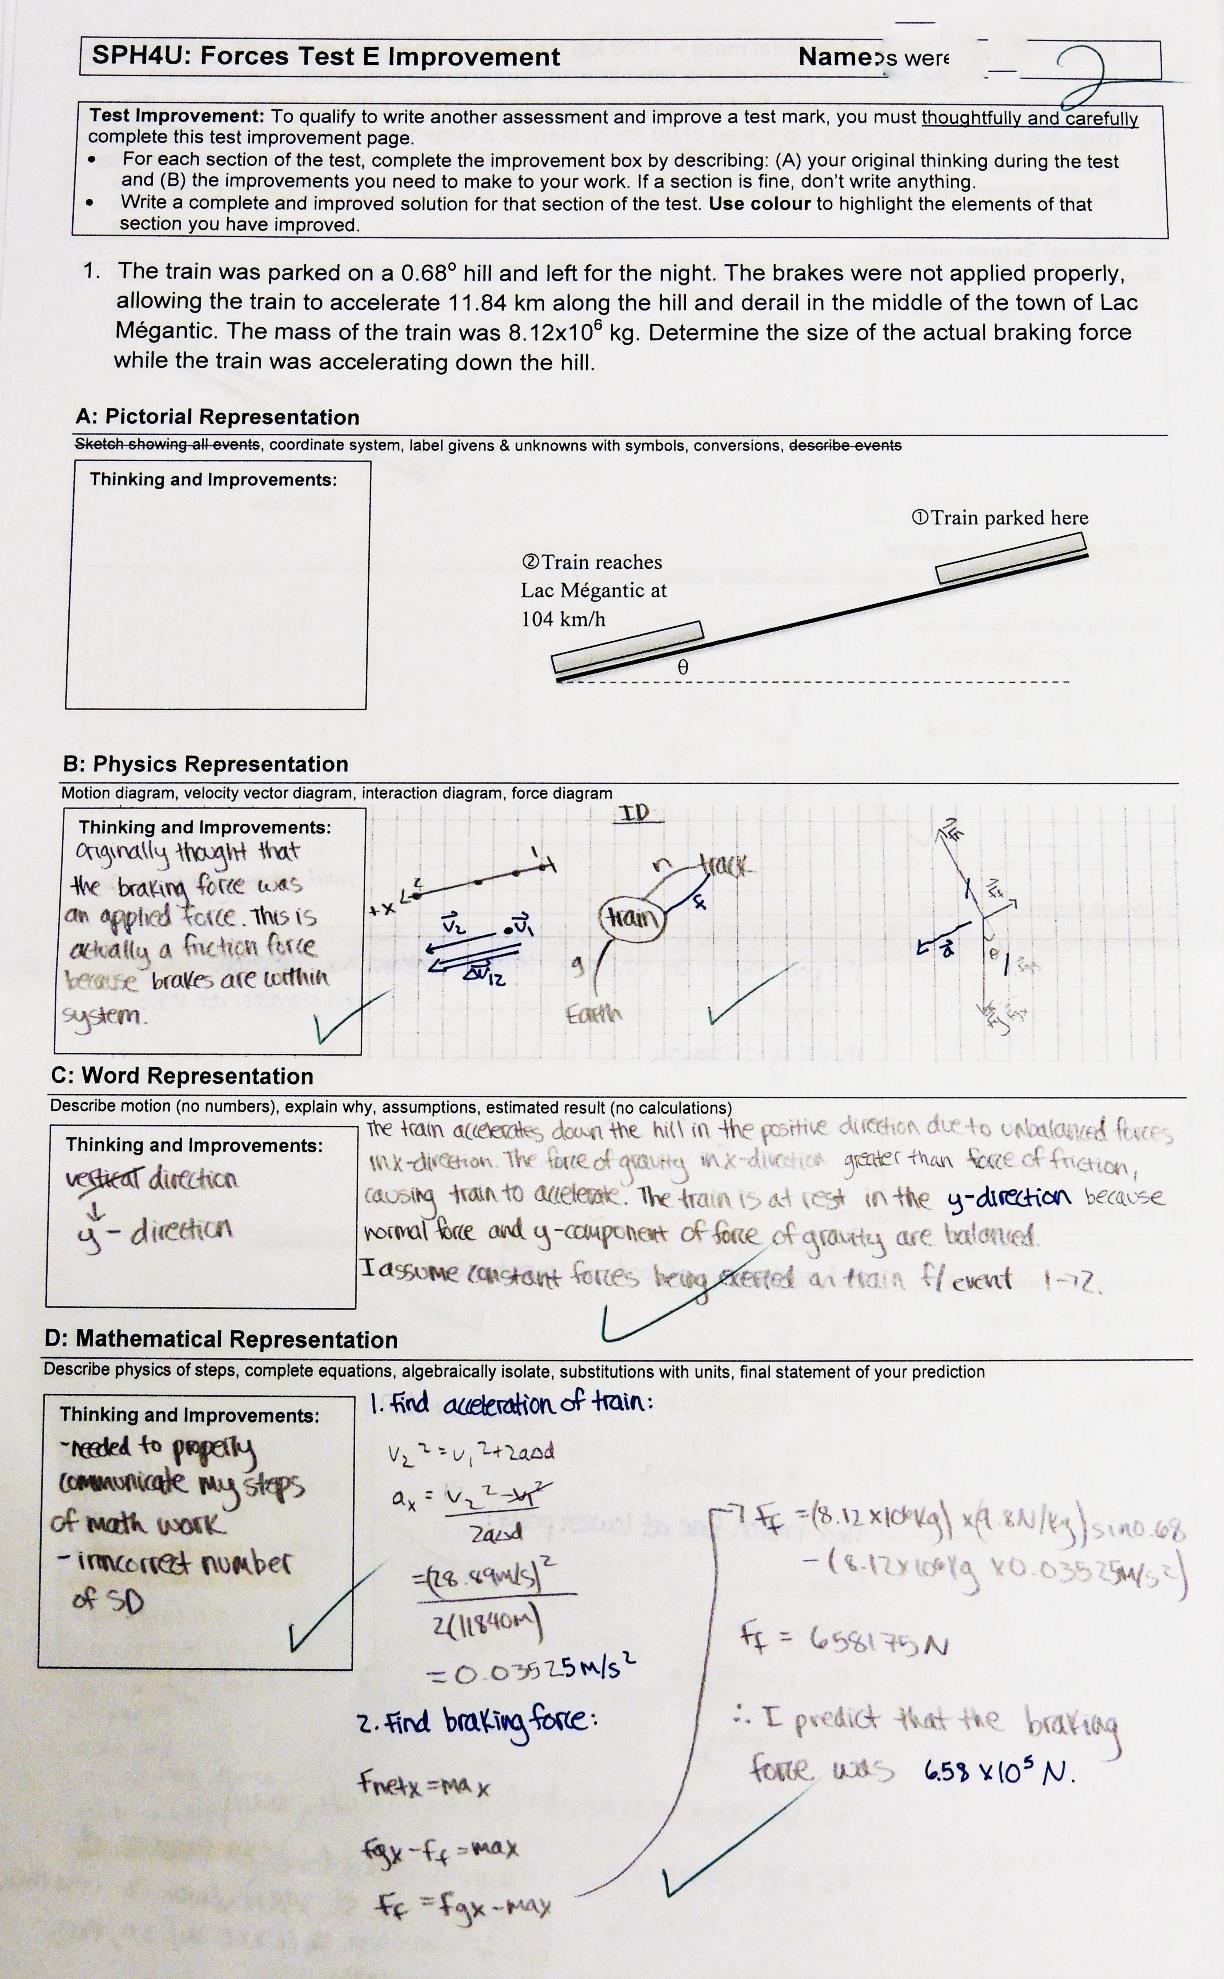 SPH4U: Forces Test E Improvement
Name:
s were
2
Test Improvement: To qualify to write another assessment and improve a test mark, you must thoughtfully and carefully
complete this test improvement page.
• For each section of the test, complete the improvement box by describing: (A) your original thinking during the test
and (B) the improvements you need to make to your work. If a section is fine, don't write anything.
• Write a complete and improved solution for that section of the test. Use colour to highlight the elements of that
section you have improved.
1. The train was parked on a 0.68° hill and left for the night. The brakes were not applied properly,
allowing the train to accelerate 11.84 km along the hill and derail in the middle of the town of Lac
Mégantic. The mass of the train was 8.12x10⁶ kg. Determine the size of the actual braking force
while the train was accelerating down the hill.
A: Pictorial Representation
Sketch showing all events, coordinate system, label givens & unknowns with symbols, conversions, describe events
Thinking and Improvements:
①Train parked here
②Train reaches
Lac Mégantic at
104 km/h
θ
B: Physics Representation
Motion diagram, velocity vector diagram, interaction diagram, force diagram
Thinking and Improvements:
originally thought that
the braking force was
an applied force. This is
actually a friction force
because brakes are within
system.
+x
2
1
v₂
v₁
Δv₁₂
ID
n
track
train
f
g
Earth
a
θ
C: Word Representation
Describe motion (no numbers), explain why, assumptions, estimated result (no calculations)
Thinking and Improvements:
vertical direction
↓
y - direction
The train accelerates down the hill in the positive direction due to unbalanced forces
in x-direction. The force of gravity in x-direction greater than force of friction,
causing train to accelerate. The train is at rest in the y-direction because
normal force and y-component of force of gravity are balanced.
I assume constant forces being exerted on train f/ event 1→2.
D: Mathematical Representation
Describe physics of steps, complete equations, algebraically isolate, substitutions with units, final statement of your prediction
Thinking and Improvements:
-needed to properly
communicate my steps
of math work
- inncorrect number
of SD
1. Find acceleration of train:
v₂² = v₁² + 2aΔd
aₓ = v₂² - v₁²
2aΔd
=(28.89m/s)²
2(11840m)
= 0.03525 m/s²
2. Find braking force:
Fnetx = max
Fgx - Ff = max
Ff = Fgx - max
→ Ff = (8.12 x10⁶kg) x(9.8N/kg) sin0.68
- (8.12x10⁶kg x0.03525m/s²)
Ff = 658175N
∴ I predict that the braking
force was 6.58 x10⁵ N.